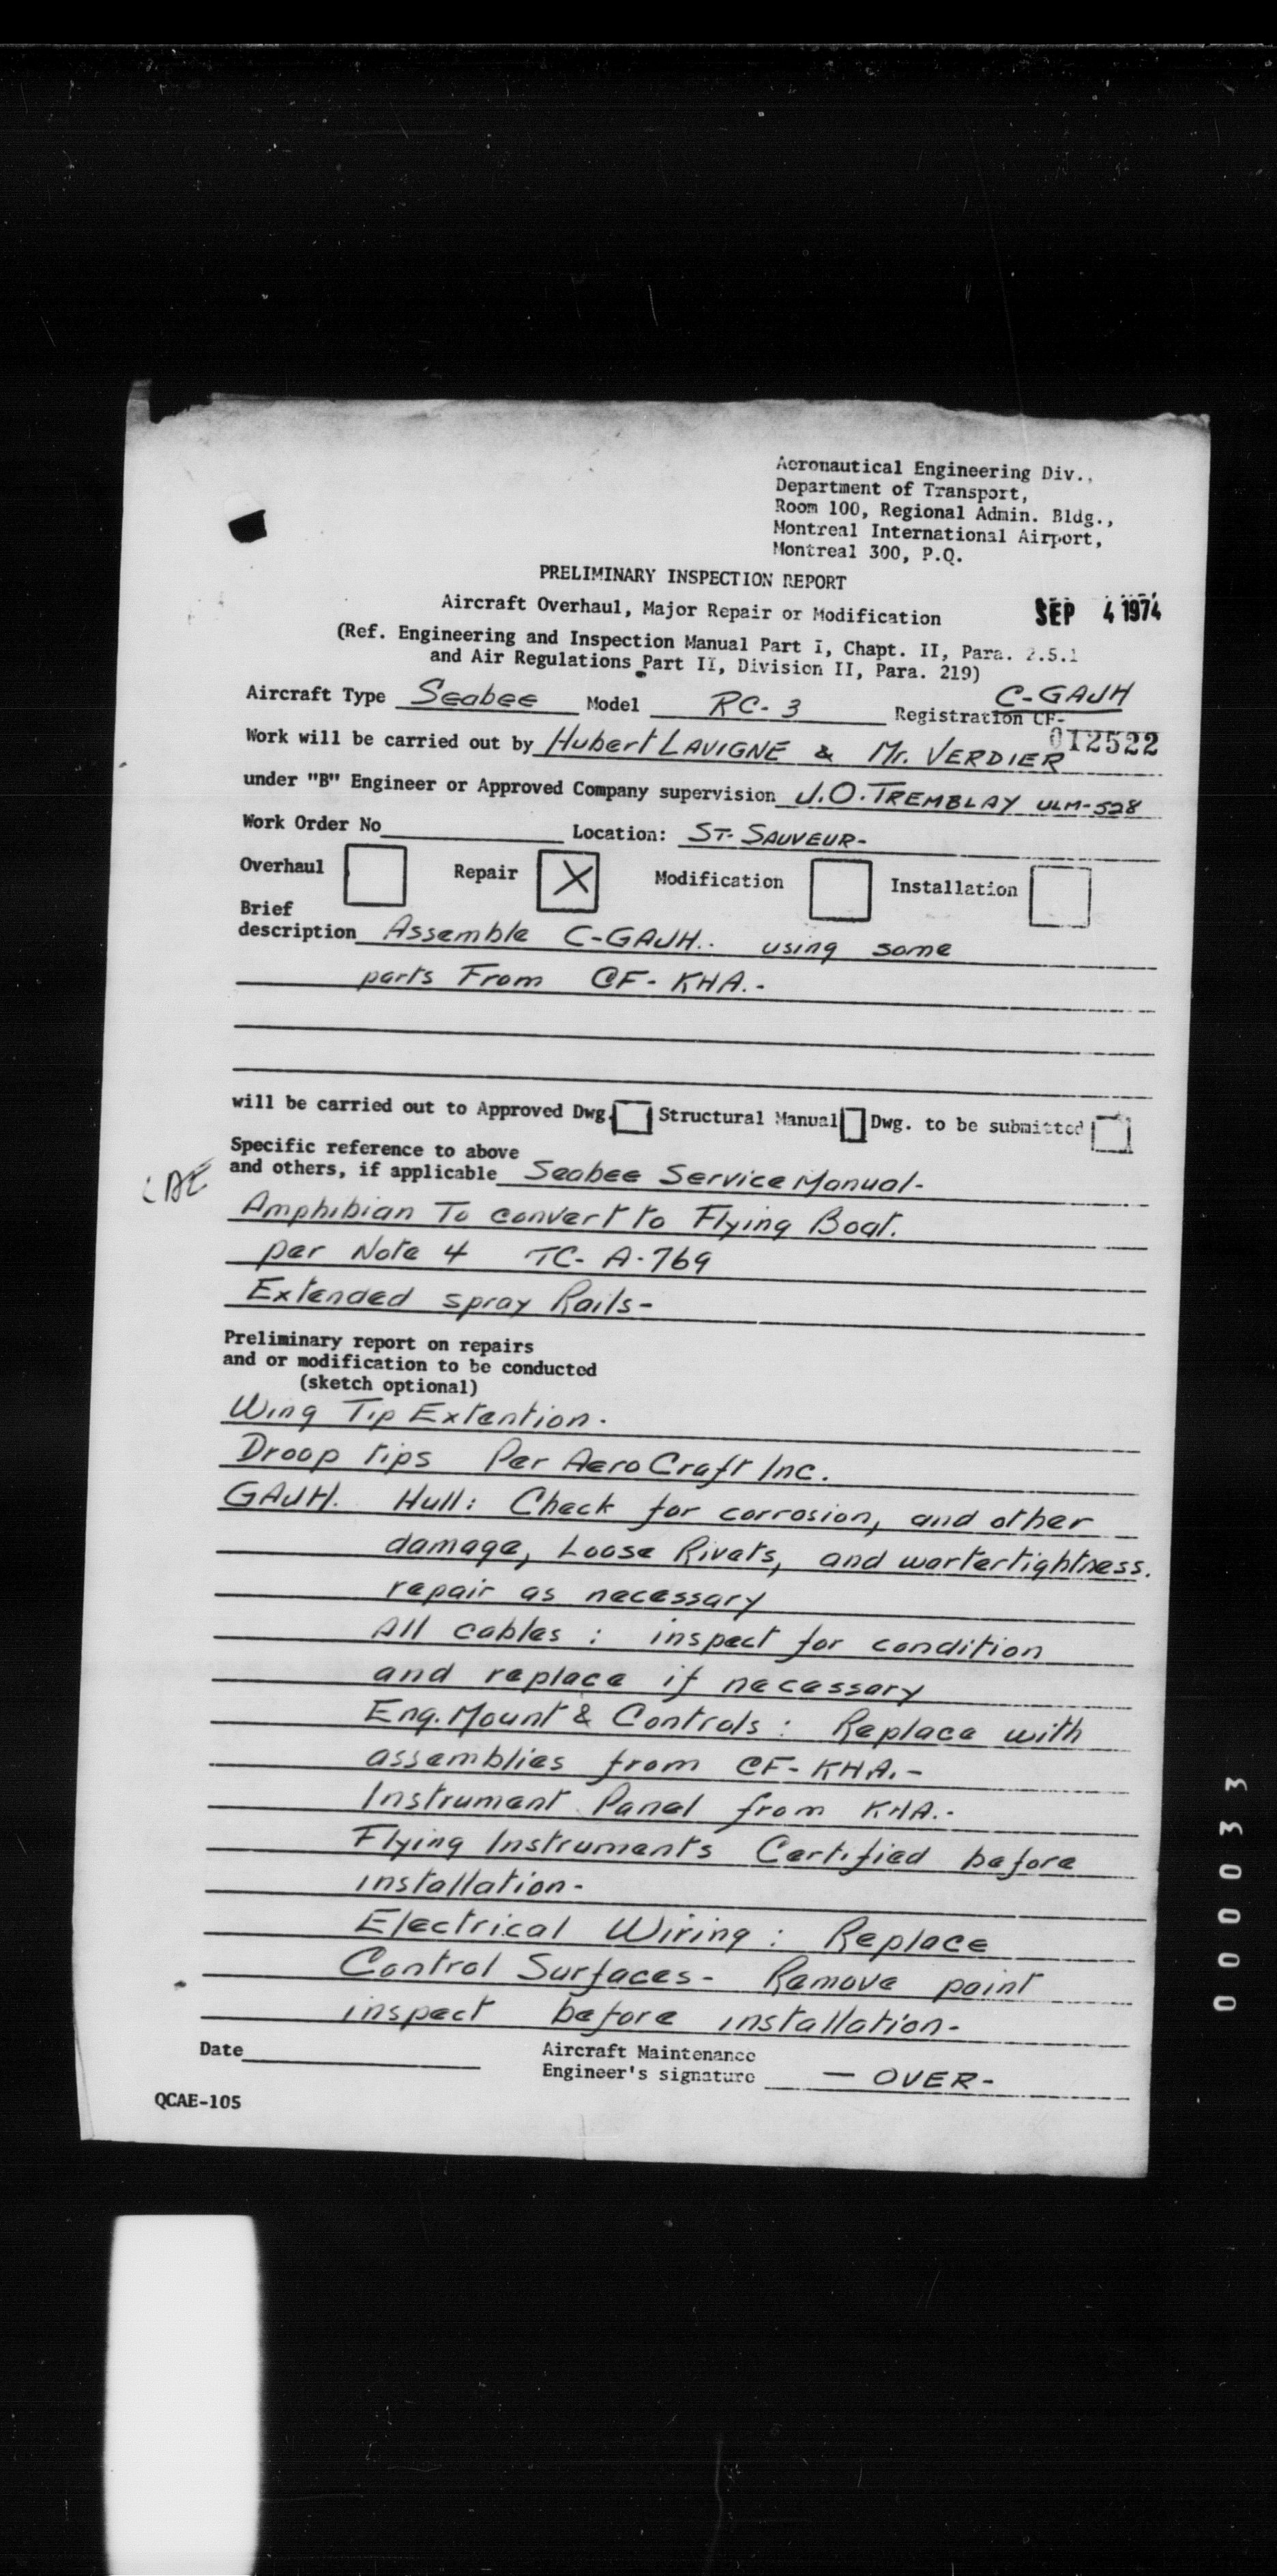 Aeronautical Engineering Div.,
Department of Transport,
Room 100, Regional Admin. Bldg.,
Montreal International Airport,
Montreal 300, P.Q.
PRELIMINARY INSPECTION REPORT
Aircraft Overhaul, Major Repair or Modification
SEP 4 1974
(Ref. Engineering and Inspection Manual Part I, Chapt. II, Para. 2.5.1
and Air Regulations Part II, Division II, Para. 219)
Aircraft Type Seabee Model RC-3 Registration CF- C-GAJH
012522
Work will be carried out by Hubert LAVIGNE & Mr. VERDIER
under "B" Engineer or Approved Company supervision J.O. TREMBLAY ULM-528
Work Order No Location: ST- SAUVEUR-
Overhaul Repair X Modification Installation
Brief
description Assemble C-GAJH.. using some
parts From CF- KHA.-
will be carried out to Approved Dwg. Structural Manual Dwg. to be submitted
Specific reference to above
and others, if applicable Seabee Service Manual-
Amphibian To convert to Flying Boat.
per Note 4 TC- A-769
Extended spray Rails-
Preliminary report on repairs
and or modification to be conducted
(sketch optional)
Wing Tip Extention.
Droop tips Per Aero Craft Inc.
GAJH. Hull: Check for corrosion, and other
damage, Loose Rivets, and wartertightness.
repair as necessary
All cables : inspect for condition
and replace if necessary
Eng. Mount & Controls : Replace with
assemblies from CF- KHA.-
Instrument Panel from KHA.-
Flying Instruments Certified before
installation-
Electrical Wiring : Replace
Control Surfaces- Remove paint
inspect before installation-
Date Aircraft Maintenance
Engineer's signature — OVER-
QCAE-105
000033